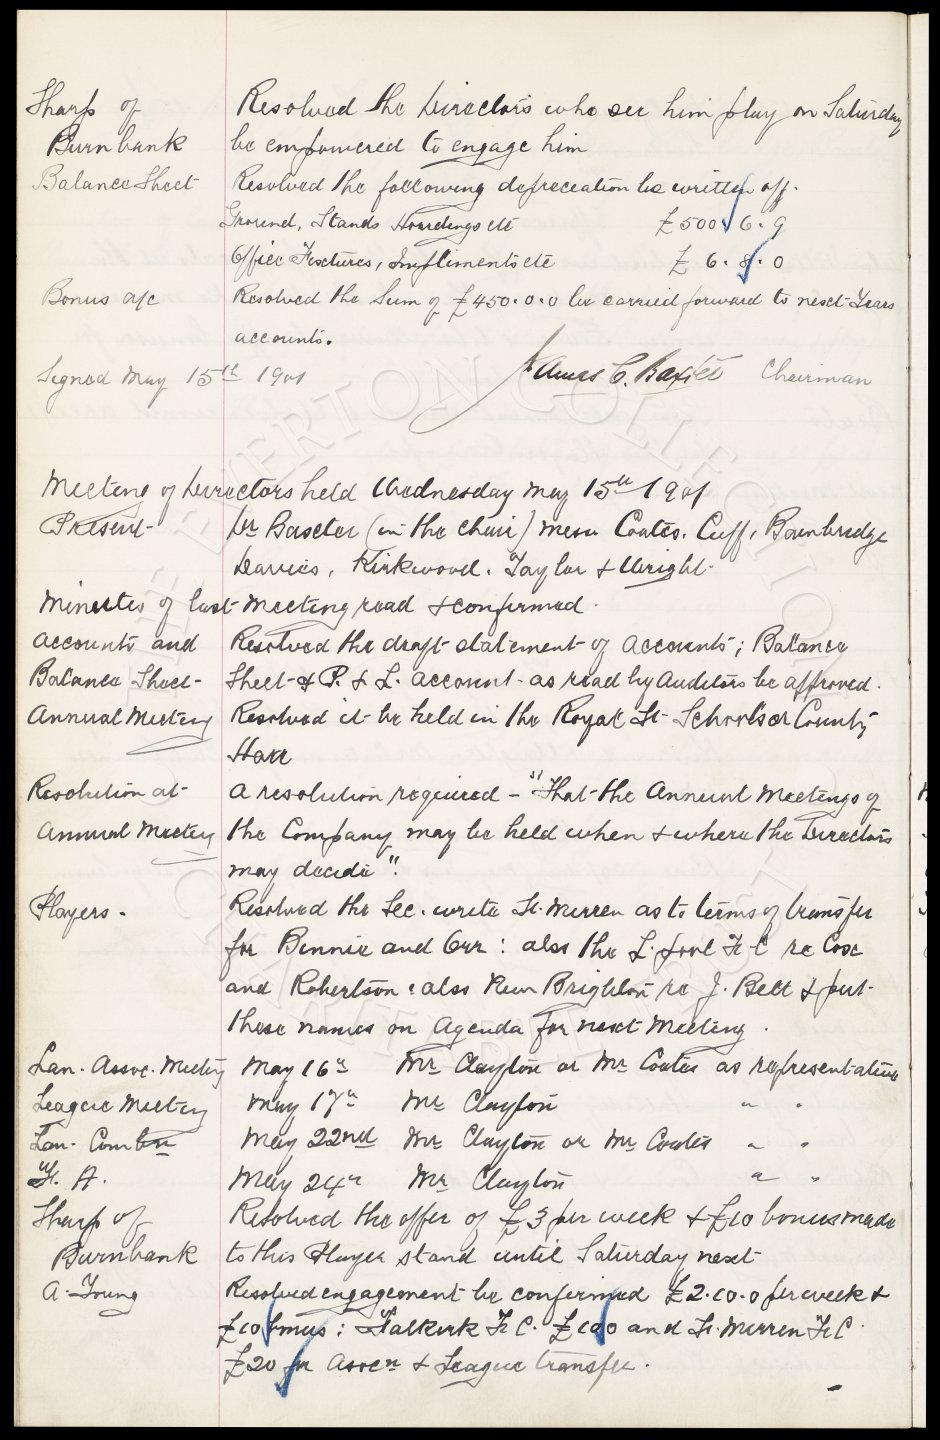 Sharp of Resolved the Directors who see him play on Saturday
Burnbank be empowered to engage him
Balance Sheet Resolved the following depreceation be written off.
Ground, Stands Hoardings etc £500. 6. 9
Office Fixtures, Impliments etc £ 6. 8. 0
Bonus a/c Resolved the Sum of £450.0.0 be carried forward to next Years
accounts.
Signed May 15th 1901 James C. Baxter Chairman
Meeting of Directors held Wednesday May 15th 1901
Present- Dr Baxter (in the chair) Messrs Coates. Cuff, Bainbridge
Davies, Kirkwood. Taylor & Wright.
Minutes of last Meeting read & confirmed.
Accounts and Resolved the draft statement of accounts; Balance
Balance Sheet- Sheet & P. & L. account- as read by Auditors be approved.
Annual Meeting Resolved it be held in the Royal St- School or County
Hall
Resolution at- A resolution required - "That the Annual Meetings of
Annual Meeting the Company may be held when & where the Directors
may decide".
Players. Resolved the Sec. write St. Mirren as to terms of transfer
for Bennie and Orr : also the L.pool F C re Cox
and Robertson : also New Brighton re J. Bell & put-
these names on Agenda for next Meeting.
Lan. Assoc. Meeting May 16th Mr Clayton or Mr Coates as representative
League Meeting May 17th Mr Clayton " "
Lan. Combtn May 22nd Mr Clayton or Mr Coates " "
F. A. May 24th Mr Clayton " "
Sharp of Resolved the offer of £3 per week & £10 bonus made
Burnbank to this Player stand until Saturday next
A. Young Resolved engagement be confirmed £2.10.0 per week &
£10 bonus : Falkirk F C. £100 and St. Mirren F C.
£20 for Assocn & League transfer.
THE EVERTON COLLECTION